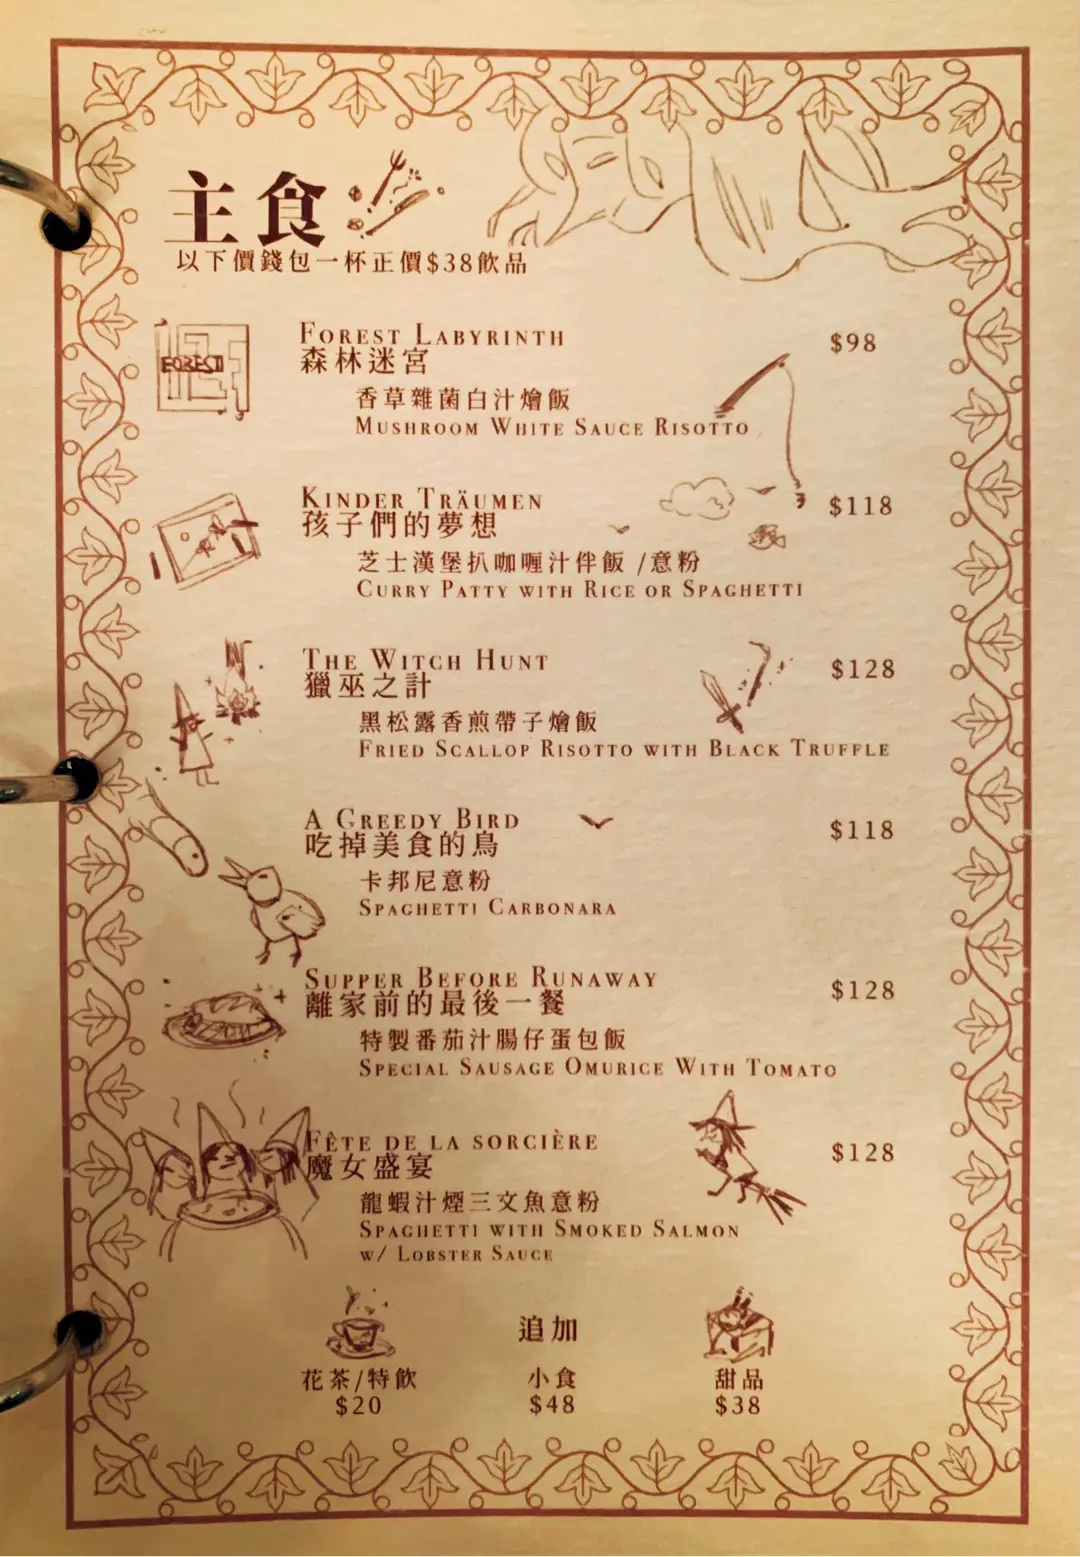 主食
以下價錢包一杯正價$38飲品
FOREST LABYRINTH $98
森林迷宮
香草雜菌白汁燴飯
MUSHROOM WHITE SAUCE RISOTTO
FOREST
KINDER TRÄUMEN $118
孩子們的夢想
芝士漢堡扒咖喱汁伴飯 /意粉
CURRY PATTY WITH RICE OR SPAGHETTI
THE WITCH HUNT $128
獵巫之計
黑松露香煎帶子燴飯
FRIED SCALLOP RISOTTO WITH BLACK TRUFFLE
A GREEDY BIRD $118
吃掉美食的鳥
卡邦尼意粉
SPAGHETTI CARBONARA
SUPPER BEFORE RUNAWAY $128
離家前的最後一餐
特製番茄汁腸仔蛋包飯
SPECIAL SAUSAGE OMURICE WITH TOMATO
FÊTE DE LA SORCIÈRE $128
魔女盛宴
龍蝦汁煙三文魚意粉
SPAGHETTI WITH SMOKED SALMON
W/ LOBSTER SAUCE
追加
花茶/特飲 小食 甜品
$20 $48 $38